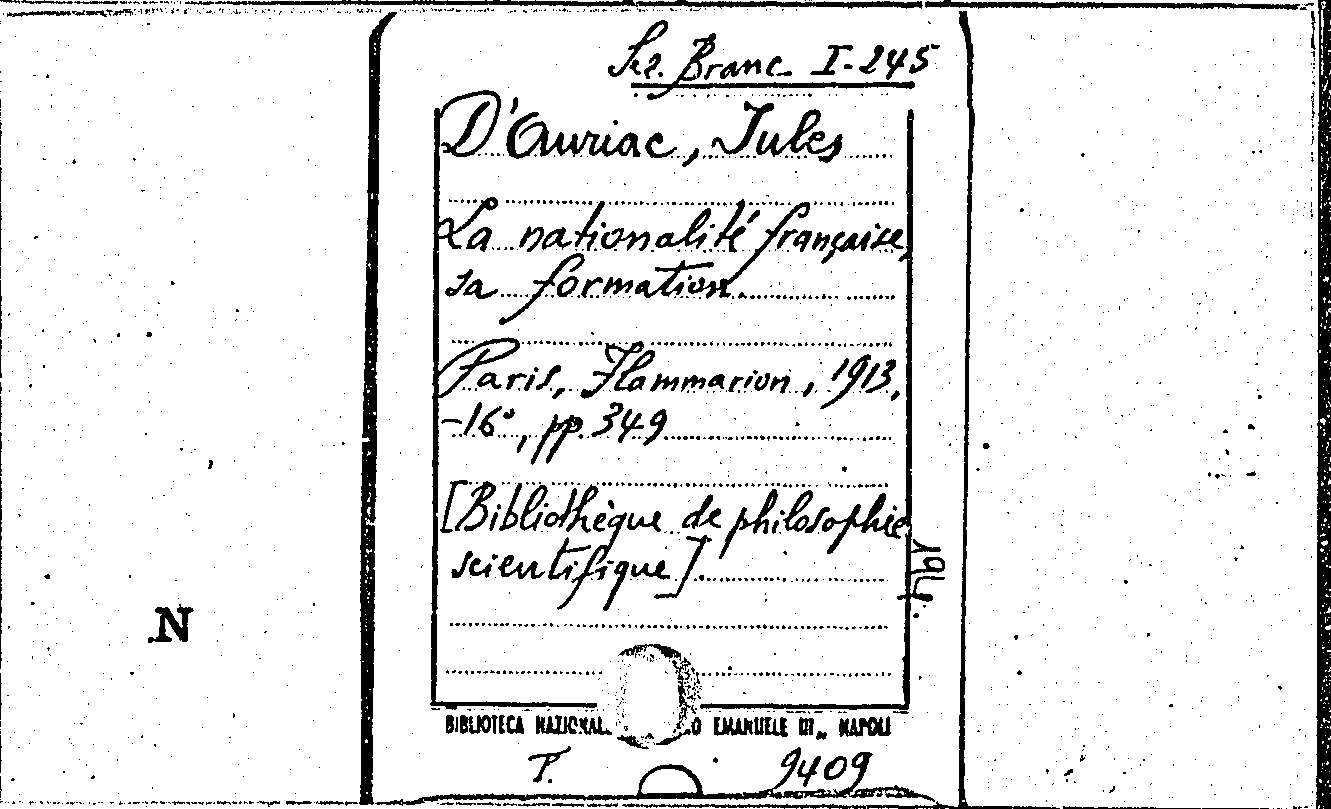 Sez. Branc. I-245
D'Auriac, Jules
La nationalité française,
sa formation.
Paris, Flammarion, 1913,
-16°, pp. 349
[Bibliothèque de philosophie
scientifique]
194.
N
BIBLIOTECA NAZIONAL EMANUELE III„ NAPOLI
T. 9409